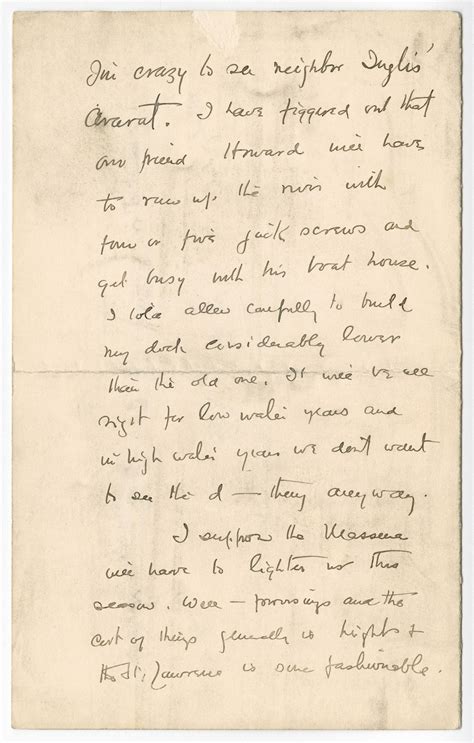 I'm crazy to see neighbor Inglis'
Ararat. I have figgered out that
our friend Howard will have
to run up the river with
four or five jack screws and
get busy with his boat house.
I told Allen carefully to build
my dock considerably lower
than the old one. It will be all
right for low water years and
in high water years we don't want
to see the d— thing anyway.
I suppose the Massena
will have to lighter us this
season. Well — provisions and the
cost of things generally is height &
the St. Lawrence is some fashionable.